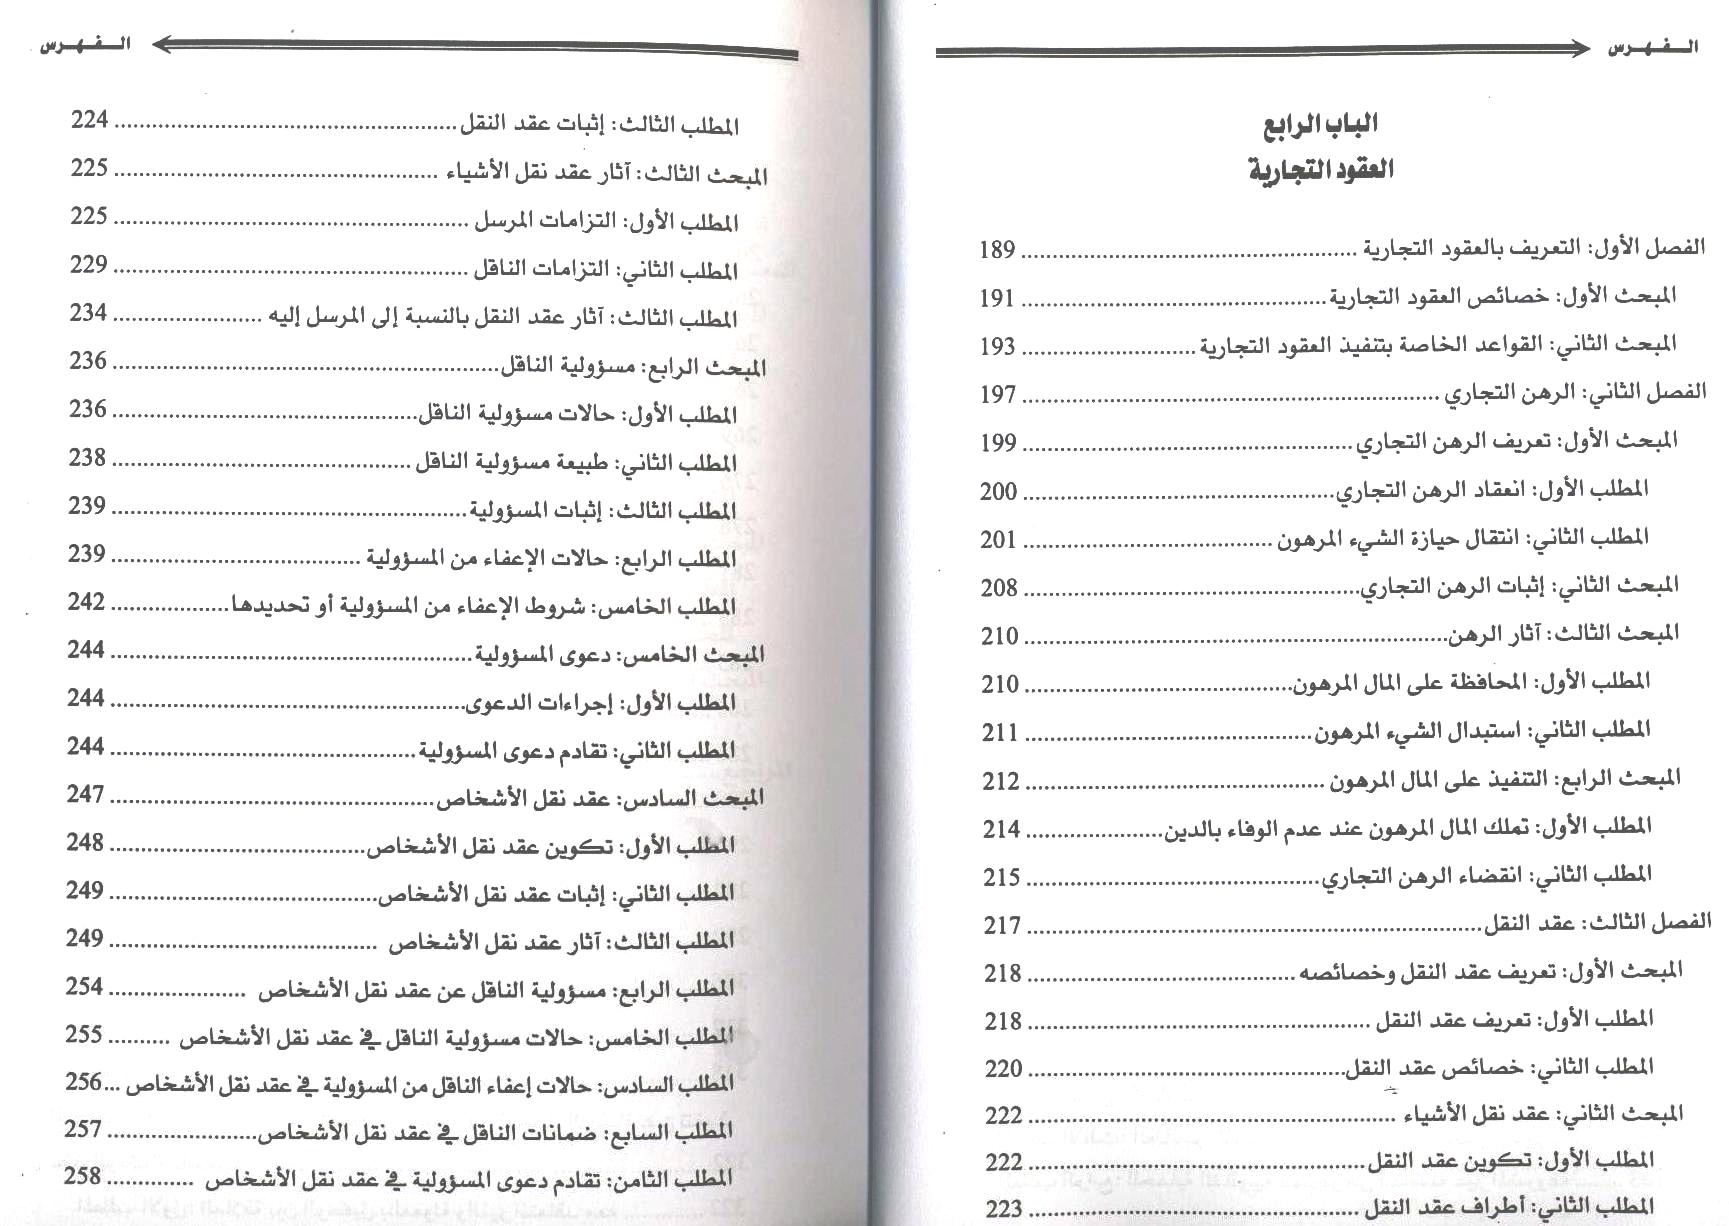 الفهرس
الباب الرابع
العقود التجارية
الفصل الأول: التعريف بالعقود التجارية ........ 189
المبحث الأول: خصائص العقود التجارية ........ 191
المبحث الثاني: القواعد الخاصة بتنفيذ العقود التجارية ........ 193
الفصل الثاني: الرهن التجاري ........ 197
المبحث الأول: تعريف الرهن التجاري ........ 199
المطلب الأول: انعقاد الرهن التجاري ........ 200
المطلب الثاني: انتقال حيازة الشيء المرهون ........ 201
المبحث الثاني: إثبات الرهن التجاري ........ 208
المبحث الثالث: آثار الرهن ........ 210
المطلب الأول: المحافظة على المال المرهون ........ 210
المطلب الثاني: استبدال الشيء المرهون ........ 211
المبحث الرابع: التنفيذ على المال المرهون ........ 212
المطلب الأول: تملك المال المرهون عند عدم الوفاء بالدين ........ 214
المطلب الثاني: انقضاء الرهن التجاري ........ 215
الفصل الثالث: عقد النقل ........ 217
المبحث الأول: تعريف عقد النقل وخصائصه ........ 218
المطلب الأول: تعريف عقد النقل ........ 218
المطلب الثاني: خصائص عقد النقل ........ 220
المبحث الثاني: عقد نقل الأشياء ........ 222
المطلب الأول: تكوين عقد النقل ........ 222
المطلب الثاني: أطراف عقد النقل ........ 223
الفهرس
المطلب الثالث: إثبات عقد النقل ........ 224
المبحث الثالث: آثار عقد نقل الأشياء ........ 225
المطلب الأول: التزامات المرسل ........ 225
المطلب الثاني: التزامات الناقل ........ 229
المطلب الثالث: آثار عقد النقل بالنسبة إلى المرسل إليه ........ 234
المبحث الرابع: مسؤولية الناقل ........ 236
المطلب الأول: حالات مسؤولية الناقل ........ 236
المطلب الثاني: طبيعة مسؤولية الناقل ........ 238
المطلب الثالث: إثبات المسؤولية ........ 239
المطلب الرابع: حالات الإعفاء من المسؤولية ........ 239
المطلب الخامس: شروط الإعفاء من المسؤولية أو تحديدها ........ 242
المبحث الخامس: دعوى المسؤولية ........ 244
المطلب الأول: إجراءات الدعوى ........ 244
المطلب الثاني: تقادم دعوى المسؤولية ........ 244
المبحث السادس: عقد نقل الأشخاص ........ 247
المطلب الأول: تكوين عقد نقل الأشخاص ........ 248
المطلب الثاني: إثبات عقد نقل الأشخاص ........ 249
المطلب الثالث: آثار عقد نقل الأشخاص ........ 249
المطلب الرابع: مسؤولية الناقل عن عقد نقل الأشخاص ........ 254
المطلب الخامس: حالات مسؤولية الناقل في عقد نقل الأشخاص ........ 255
المطلب السادس: حالات إعفاء الناقل من المسؤولية في عقد نقل الأشخاص ... 256
المطلب السابع: ضمانات الناقل في عقد نقل الأشخاص ........ 257
المطلب الثامن: تقادم دعوى المسؤولية في عقد نقل الأشخاص ........ 258